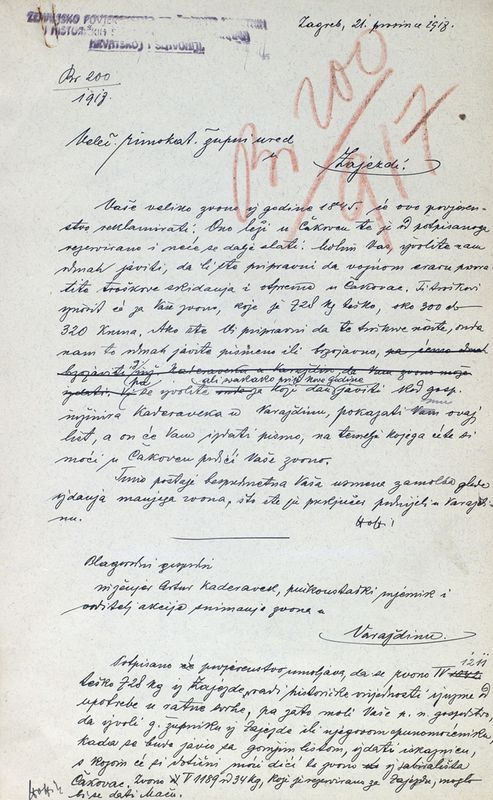 ZEMALJSKO POVJERENSTVO
HRVATSKOJ I SLAVONIJI.
Zagreb, 21. prosinca 1917.
Br 200
1917.
Br 200
917
Veleč. rimokat. župni ured
u
Zajezdi.
Vaše veliko zvono iz godine 1845. je ovo povjeren-
stvo reklamirati. Ono leži u Čakovcu te je od potpisanoga
rezervirano i neće se dalje slati. Molim Vas, izvolite nam
odmah javiti, da li ste pripravni da vojnom eraru povra-
tite troškove skidanja i otpreme u Čakovac. Ti troškovi
iznosit će za Vaše zvono, koje je 728 kg teško, oko 300 do
320 Kruna. Ako ste Vi pripravni da te troškove nosite, onda
nam to odmah javite pismeno ili brzojavno,
pa
ali svakako prije nove godine
se izvolite koji dan javiti kod gosp.
inžinira Kaderaveka u Varaždinu, pokazati mu ovaj
list, a on će Vam izdati pismo, na temelju kojega ćete si
moći u Čakovcu podići Vaše zvono.
Time postaje bespredmetna Vaša usmena zamolba glede
izdanja manjega zvona, što ste je podnijeli u Varaždi-
nu.
Blagorodni gospodin
inženjer Artur Kaderavek, pukoustaški mjernik i
voditelj akcije snimanja zvona u
Varaždinu.
Potpisano povjerenstvo umoljava, da se zvono IV 1211
teško 728 kg iz Zajezde, radi historičke vrijednosti izuzme od
upotrebe u ratne svrhe, pa zato moli Vaše p. n. gospodstvo,
da izvoli g. župniku iz Zajezde ili njegovom opunomoćeniku
kada se bude javio sa gornjim listom, izdati iskaznicu,
s kojom će si dotični moći dići to zvono iz sabirališta
Čakovac. Zvono V 1189 od 34 kg, koji je rezerviran za Zajezdu, moglo
bi se dati Maču.